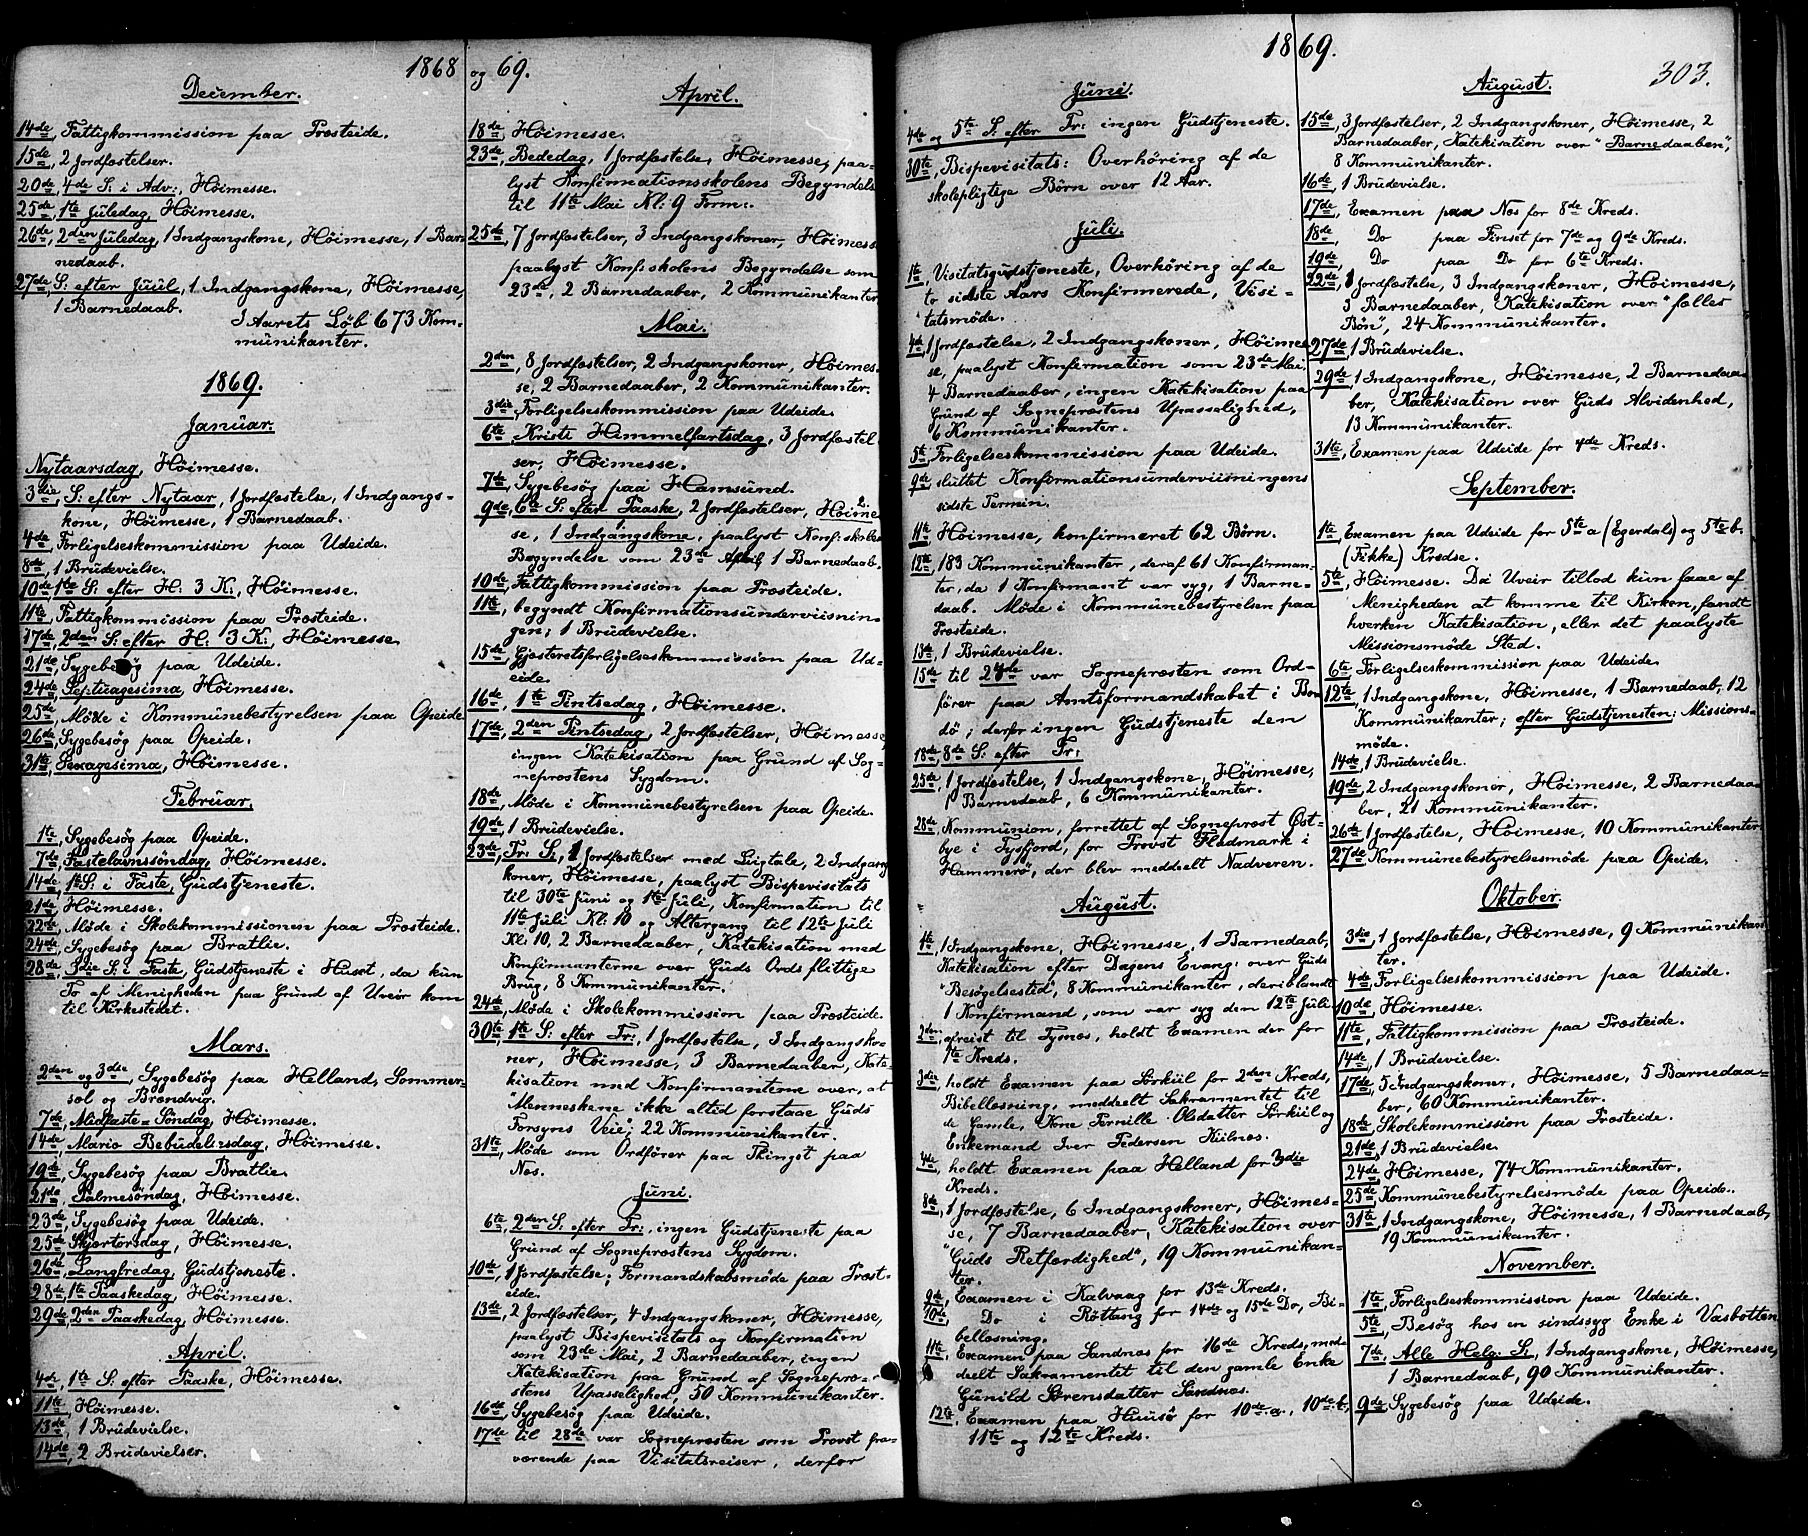 1868 og 69.
December.
14de, Fattigkommission paa Præsteide.
15de, 2 Jordfæstelser.
20de, 4de S: i Adv:, Høimesse.
25de, 1te Juledag, Høimesse.
26de, 2den Juledag, 1 Indgangskone, Høimesse, 1 Bar-
nedaab.
27de, S: efter Juul, 1 Indgangskone, Høimesse,
1 Barnedaab.
I Aarets Løb 673 Kom-
munikanter.
1869.
Januar.
Nytaarsdag, Høimesse.
3die, S: efter Nytaar, 1 Jordfæstelse, 1 Indgangs-
kone, Høimesse, 1 Barnedaab.
4de, Forligelseskommission paa Udeide.
8de, 1 Brudevielse.
10de, 1te S: efter H: 3 K:, Høimesse.
11te, Fattigkommission paa Præsteide.
17de, 2den S: efter H: 3 K:, Høimesse.
21de, Sygebesøg paa Udeide.
24de, Septuagesima, Høimesse.
25de, Møde i Kommunebestyrelsen paa Opeide.
26de, Sygebesøg paa Opeide.
31te, Sexagesima, Høimesse.
Februar.
1te, Sygebesøg paa Opeide.
7de, Fastelavnssøndag, Høimesse.
14de, 1te S: i Faste, Gudstjeneste.
21de, Høimesse.
22de, Møde i Skolekommissionen paa Præsteide.
24de, Sygebesøg paa Bratlie.
28de, 3die S: i Faste, Gudstjeneste i Huset, da kun
To af Menigheden paa Grund af Uveir kom
til Kirkestedet.
Mars.
2den og 3die, Sygebesøg paa Helland, Sommer-
sel og Brændvig.
7de, Midfaste-Søndag, Høimesse.
14de, Mariæ Bebudelsesdag, Høimesse.
19de, Sygebesøg paa Bratlie.
21de, Palmesøndag, Høimesse.
23de, Sygebesøg paa Udeide.
25de, Skjærtorsdag, Høimesse.
26de, Langfredag, Gudstjeneste.
28de, 1te Paaskedag, Høimesse.
29de, 2den Paaskedag, Høimesse.
April.
4de, 1te S: efter Paaske, Høimesse.
11te, Høimesse.
13de, 1 Brudevielse.
14de, 2 Brudevielser.
April.
18de, Høimesse.
23de, Bededag, 1 Jordfæstelse, Høimesse, paa-
lyst Konfirmationsskolens Begyndelse
til 11te Mai Kl: 9 Form:.
25de, 7 Jordfæstelser, 3 Indgangskoner, Høimesse
paalyst Konf:skolens Begyndelse som
23de, 2 Barnedaaber, 2 Kommunikanter.
Mai.
2den, 8 Jordfæstelser, 2 Indgangskoner, Høimes-
se, 2 Barnedaaber, 2 Kommunikanter.
3die, Forligelseskommission paa Udeide.
6te, Kristi Himmelfartsdag, 3 Jordfæstel-
ser, Høimesse.
7de, Sygebesøg paa Hamsund.
9de, 6te S: efter Paaske, 2 Jordfæstelser, Høimes-
se, 1 Indgangskone, paalyst Konf:skolens
Begyndelse som 23de April, 1 Barnedaab.
10de, Fattigkommission paa Præsteide.
11te, begyndt Konfirmationsunderviisnin-
gen; 1 Brudevielse.
15de, Gjæsteretsforligelseskommission paa Ud-
eide.
16de, 1te Pintsedag, Høimesse.
17de, 2den Pintsedag, 2 Jordfæstelser, Høimesse,
ingen Katekisation paa Grund af Sog-
neprøstens Sygdom.
18de, Møde i Kommunebestyrelsen paa Opeide.
19de, 1 Brudevielse.
23de, Tr: S:, 1 Jordfæstelser med Liigtale, 2 Indgangs
koner, Høimesse, paalyst Bispevisitats
til 30te Juni og 1te Juli, Konfirmation til
11te Juli Kl: 10 og Altergang til 12te Juli
Kl: 10, 2 Barnedaaber, Katekisation med
Konfirmanterne over Guds Ords flittige
Brug, 8 Kommunikanter.
24de, Møde i Skolekommission paa Præsteide.
30te, 1te S: efter Tr:, 1 Jordfæstelse, 3 Indgangsko-
ner, Høimesse, 3 Barnedaaber, Kate-
kisation med Konfirmanterne over, at
"Menneskene ikke altid forstaae Guds
Forsyns Veie; 22 Kommunikanter.
31te, Møde som Ordfører paa Thinget paa
Næs.
Juni.
6te, 2den S: efter Tr:, ingen Gudstjeneste paa
Grund af Sogneprøstens Sygdom.
10de, 1 Jordfæstelse; Formandskabsmøde paa Præst-
eide.
13de, 2 Jordfæstelser, 4 Indgangskoner, Høimesse,
paalyst Bispevisitats og Konfirmation
som 23de Mai, 2 Barnedaaber, ingen
Katekisation paa Grund af Sognepræ-
stens Upasselighed, 50 Kommunikanter.
16de, Sygebesøg paa Udeide.
17de til 28de var Sogneprøsten som Provst fra-
værende paa Visitatsreiser, derfor
1869.
303.
Juni.
4de og 5te S: efter Tr: ingen Gudstjeneste.
30te, Bispevisitats: Overhøring af de
skolepligtige Børn over 12 Aar.
Juli.
1te, Visitatsgudstjeneste, Overhøring af de
to sidste Aars Konfirmerede, Visi-
tatsmøde.
4de, 1 Jordfæstelse, 2 Indgangskoner, Høimes-
se, paalyst Konfirmation som 23de Mai,
4 Barnedaaber, ingen Katekisation paa
Grund af Sogneprøstens Upasselighed,
6 Kommunikanter.
5te, Forligelseskommission paa Udeide.
9de, sluttet Konfirmationsunderviisningens
sidste Termin.
11te, Høimesse, konfirmeret 62 Børn.
12te, 183 Kommunikanter, deraf 61 Konfirman-
ter, da 1 Konfirmant var syg, 1 Barne-
daab. Møde i Kommunebestyrelsen paa
Præsteide.
13de, 1 Brudevielse.
15de til 24de var Sogneprøsten som Ord-
fører paa Amtsformandskabet i Bo-
dø; derfor ingen Gudstjeneste den
18de, 8de S: efter Tr:
25de, 1 Jordfæstelse, 1 Indgangskone, Høimesse,
1 Barnedaab, 6 Kommunikanter.
28de, Kommunion, forrettet af Sogneprøst Øst-
bye i Tysfjord, for Provst Fladmark i
Hammerø, der blev meddeelt Nadveren.
August.
1te, 1 Indgangskone, Høimesse, 1 Barnedaab,
Katekisation efter Dagens Evang: over Guds
"Besøgelsestid", 8 Kommunikanter, deriblandt
1 Konfirmand, som var syg den 12te Juli.
2den, afreist til Tysnæs, holdt Examen der for
1te Kreds.
3die, holdt Examen paa Sørkiil for 2den Kreds,
Bibellæsning, meddeelt Sakramentet til
de Gamle, Kone Pernille Olsdatter Sørkiil og
Enkemand Iver Pedersen Kiilnæs.
4de, holdt Examen paa Helland for 3die
Kreds.
8de, 1 Jordfæstelse, 6 Indgangskoner, Høimes-
se, 7 Barnedaaber, Katekisation over
"Guds Retfærdighed", 19 Kommunikan-
ter.
9de, Examen i Kalvaag for 13de Kreds.
10de, Do i Røttang for 14de og 15de Do, Bi-
bellæsning.
11te, Examen paa Sandnæs for 16de Kreds, med-
deelt Sakramentet til den gamle Enke
Gunild Sørensdatter Sandnæs.
12te, Examen paa Huusø for 10de a, 10de b,
11te og 12te Kreds.
August.
15de, 3 Jordfæstelser, 2 Indgangskoner, Høimesse, 2
Barnedaaber, Katekisation over "Barnedaaben",
8 Kommunikanter.
16de, 1 Brudevielse.
17de, Examen paa Næs for 8de Kreds.
18de, Do paa Finset for 7de og 9de Kreds.
19de, Do paa Do for 6te Kreds.
22de, 1 Jordfæstelse, 3 Indgangskoner, Høimesse,
3 Barnedaaber, Katekisation over "fælles
Bøn", 24 Kommunikanter.
27de, 1 Brudevielse.
29de, 1 Indgangskone, Høimesse, 2 Barnedaa-
ber, Katekisation over Guds Alvidenhed,
13 Kommunikanter.
31te, Examen paa Udeide for 4de Kreds.
September.
1te, Examen paa Udeide for 5te a (Egerdals) og 5te b.
(Fikke) Kredse.
5te, Høimesse. Da Uveir tillod kun faae af
Menigheden at komme til Kirken, fandt
hverken Katekisation, eller det paalyste
Missionsmøde Sted.
6te, Forligelseskommission paa Udeide.
12te, 1 Indgangskone, Høimesse, 1 Barnedaab, 12
Kommunikanter; efter Gudstjenesten: Missions-
møde.
14de, 1 Brudevielse.
19de, 2 Indgangskoner, Høimesse, 2 Barnedaa-
ber, 21 Kommunikanter.
26te, 1 Jordfæstelse, Høimesse, 10 Kommunikanter.
27de, Kommunebestyrelsesmøde paa Opeide.
Oktober.
3die, 1 Jordfæstelse, Høimesse, 9 Kommunikan-
ter.
4de, Forligelseskommission paa Udeide.
10de, Høimesse.
11te, Fattigkommission paa Præsteide.
14de, 1 Brudevielse.
17de, 5 Indgangskoner, Høimesse, 5 Barnedaa-
ber, 60 Kommunikanter.
18de, Skolekommission paa Præsteide.
21de, 1 Brudevielse.
24de, Høimesse, 74 Kommunikanter.
25de, Kommunebestyrelsesmøde paa Opeide.
31te, 1 Indgangskone, Høimesse, 1 Barnedaab,
19 Kommunikanter.
November.
1te, Forligelseskommission paa Udeide.
5te, Besøg hos en sindssyg Enke i Vasbotten.
7de, Alle Helg: S:, 1 Indgangskone, Høimesse,
1 Barnedaab, 90 Kommunikanter.
9de, Sygebesøg paa Udeide.